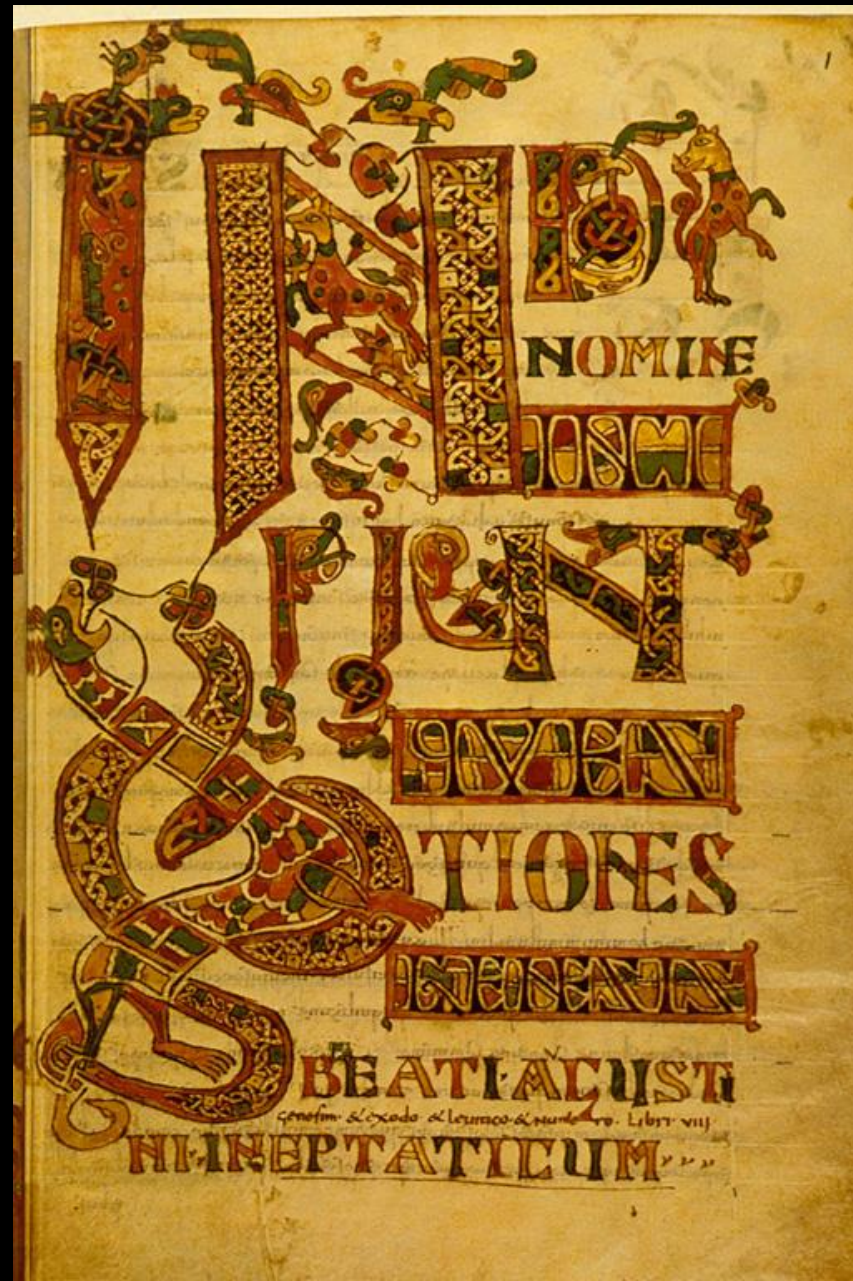 1
IN DI
NOMINE
PIUNT
TIONES
BEATI·AGUSTI
genesim & exodo & leuitico & numero. Libri VIII
NI·INEPTATICUM